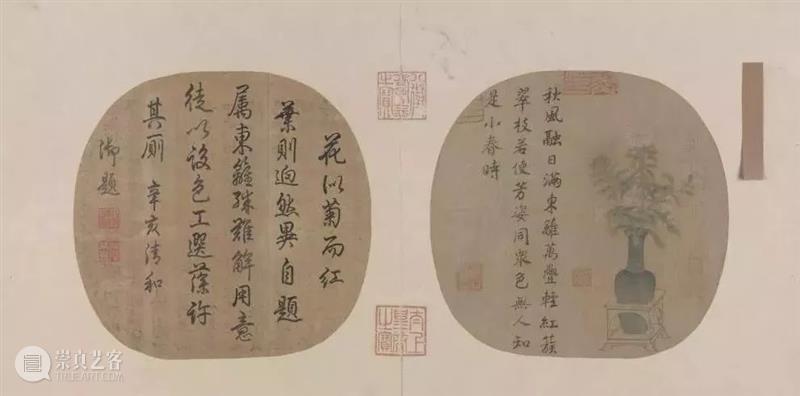 秋風融日滿東籬萬疊輕紅簇
翠枝若使芳姿同衆色無人知
是小春時
八徵耄念之寶
太上皇帝之寶
花似菊而紅
葉則迥然異自題
屬東籬殊難解用意
徒以設色工選葆許
其厠 辛亥清和
御題
崇真艺客